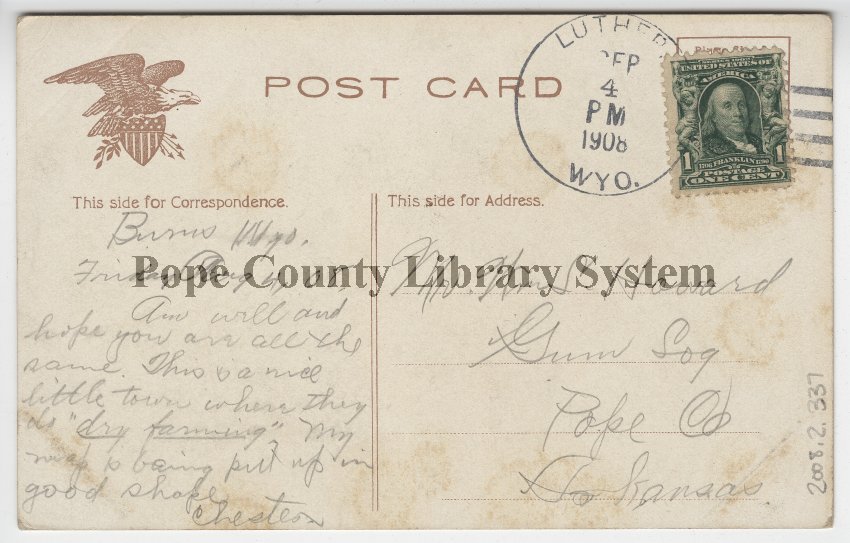 POST CARD
LUTHER
SEP
4
PM
1908
WYO.
SERIES 1902
UNITED STATES OF
AMERICA
1 1706 FRANKLIN 1790 1
POSTAGE
ONE CENT
This side for Correspondence.
This side for Address.
Burns Wyo.
Friday Aug
Am well and
hope you are all the
same. This is a nice
little town where they
do "dry farming". My
map is being put up in
good shape
Chester
Howard
Gum Log
Pope Co
Arkansas
Pope County Library System
2008.2.337